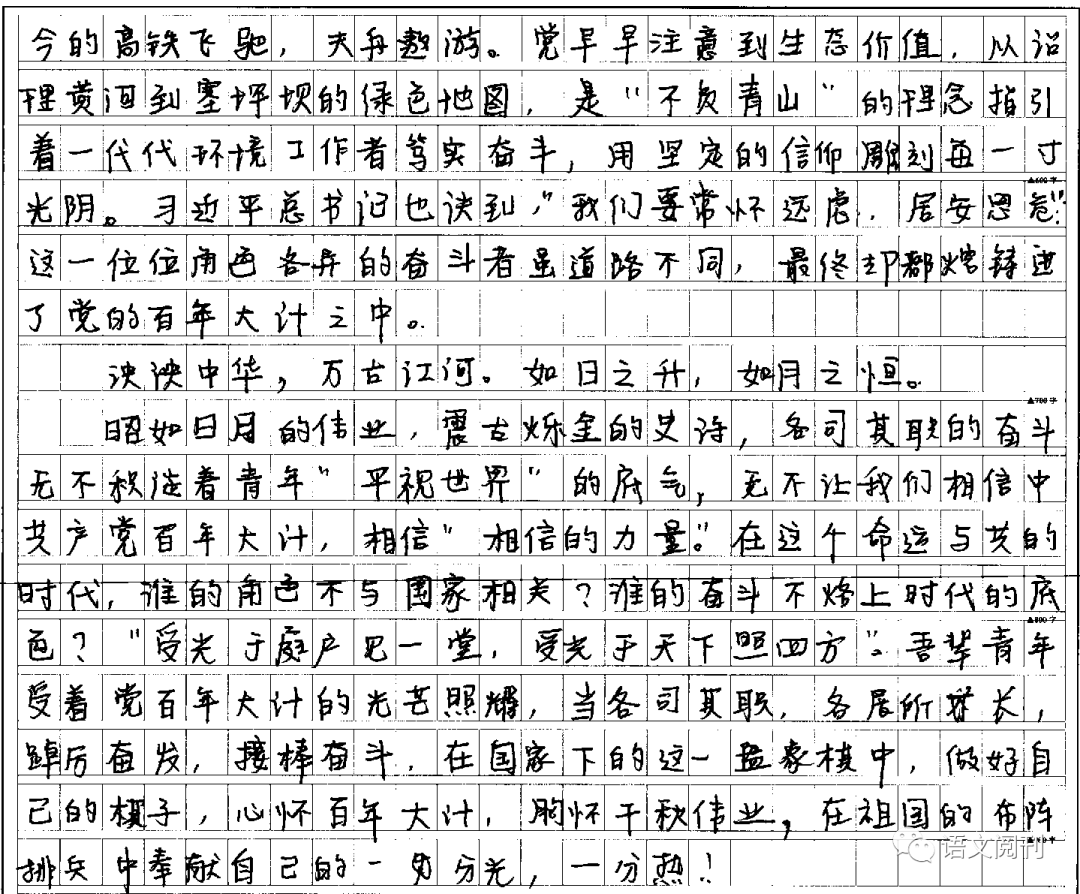 今的高铁飞驰，天舟遨游。党早早注意到生态价值，从治
理黄河到塞坪坝的绿色地图，是“不负青山”的理念指引
着一代代环境工作者笃实奋斗，用坚定的信仰雕刻每一寸
▲600字
光阴。习近平总书记也谈到，“我们要常怀远虑，居安思危”。
这一位位角色各异的奋斗者虽道路不同，最终却都熔铸进
了党的百年大计之中。
泱泱中华，万古江河。如日之升，如月之恒。
▲700字
昭如日月的伟业，震古烁金的史诗，各司其职的奋斗
无不积淀着青年“平视世界”的底气，无不让我们相信中
共产党百年大计，相信“相信的力量”。在这个命运与共的
时代，谁的角色不与国家相关？谁的奋斗不烙上时代的底
▲800字
色？“受光于庭户见一堂，受光于天下照四方”。吾辈青年
受着党百年大计的光芒照耀，当各司其职，各展所长，
踔厉奋发，接棒奋斗，在国家下的这一盘象棋中，做好自
己的棋子，心怀百年大计，胸怀千秋伟业，在祖国的布阵
排兵中奉献自己的一分光，一分热！
语文阅刊